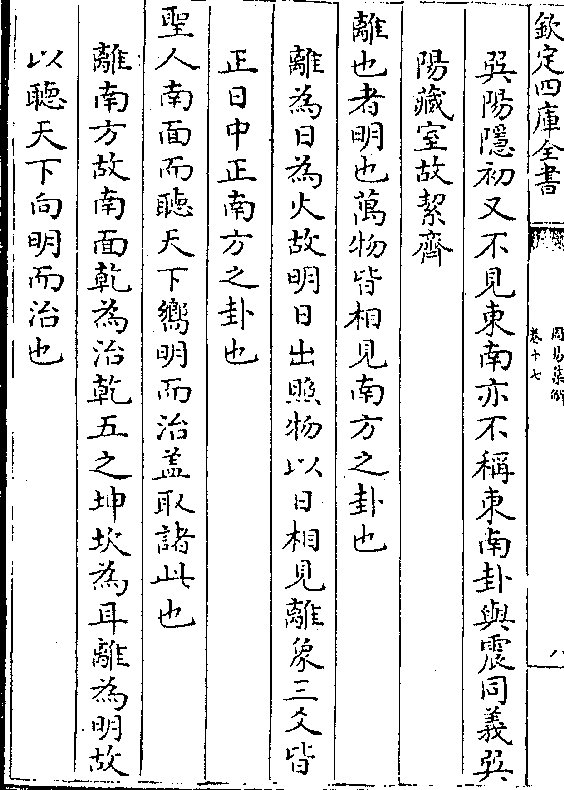 欽定四庫全書
周易集解
卷十七
八
巽陽隱初又不見東南亦不稱東南卦與震同義巽
陽藏室故絜齊
離也者明也萬物皆相見南方之卦也
離為日為火故明日出照物以日相見離象三爻皆
正日中正南方之卦也
聖人南面而聽天下嚮明而治蓋取諸此也
離南方故南面乾為治乾五之坤坎為耳離為明故
以聽天下向明而治也